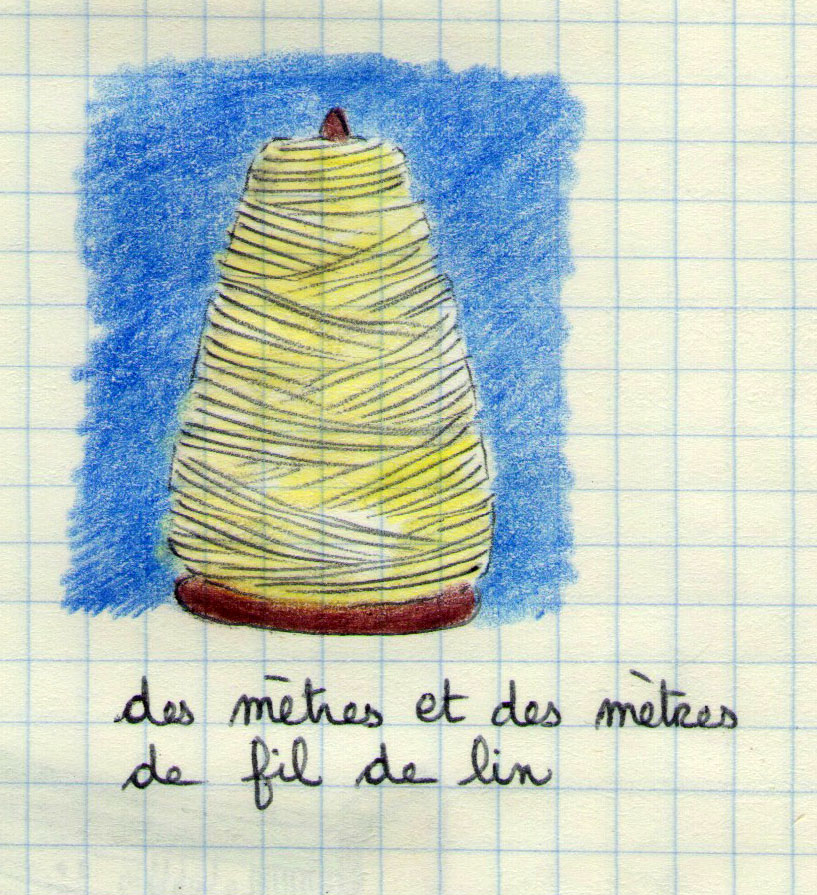 des mètres et des mètres
de fil de lin